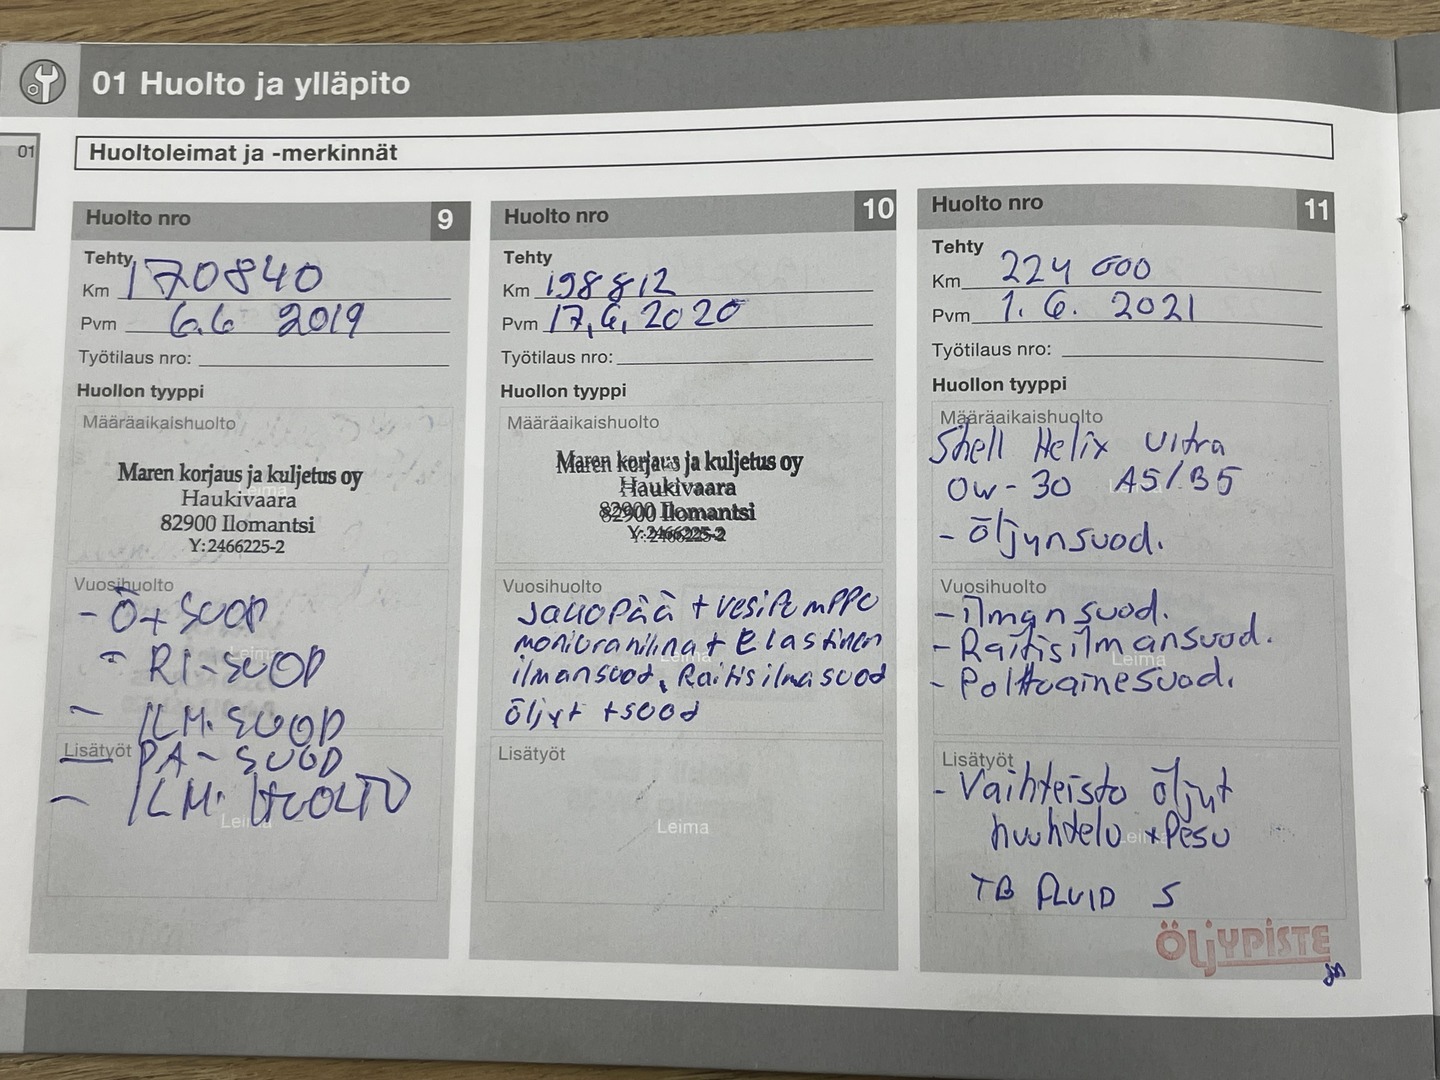 01 Huolto ja ylläpito
01
Huoltoleimat ja -merkinnät
Huolto nro 9
Tehty
Km 170840
Pvm 6.6 2019
Työtilaus nro:
Huollon tyyppi
Määräaikaishuolto
Maren korjaus ja kuljetus oy
Haukivaara
82900 Ilomantsi
Y:2466225-2
Vuosihuolto
- Ö+SUOD
- RI-SUOD
- ILM.SUOD
Lisätyöt
- PA-SUOD
- ILM.HUOLTO
Leima
Huolto nro 10
Tehty
Km 198812
Pvm 17.6.2020
Työtilaus nro:
Huollon tyyppi
Määräaikaishuolto
Maren korjaus ja kuljetus oy
Haukivaara
82900 Ilomantsi
Y:2466225-2
Vuosihuolto
Jakopää + vesipumppu
moniurahihna + Elastinen
ilmansuod, Raitisilmasuod
öljyt + suod
Leima
Lisätyöt
Leima
Huolto nro 11
Tehty
Km 224 000
Pvm 1. 6. 2021
Työtilaus nro:
Huollon tyyppi
Määräaikaishuolto
Shell Helix Ultra
0w-30 A5/B5
- öljynsuod.
Vuosihuolto
- ilmansuod.
- Raitisilmansuod.
Leima
- Polttoainesuod.
Lisätyöt
- Vaihteisto öljyt
huuhtelu + Pesu
Leima
TB FLUID S
ÖLJYPISTE